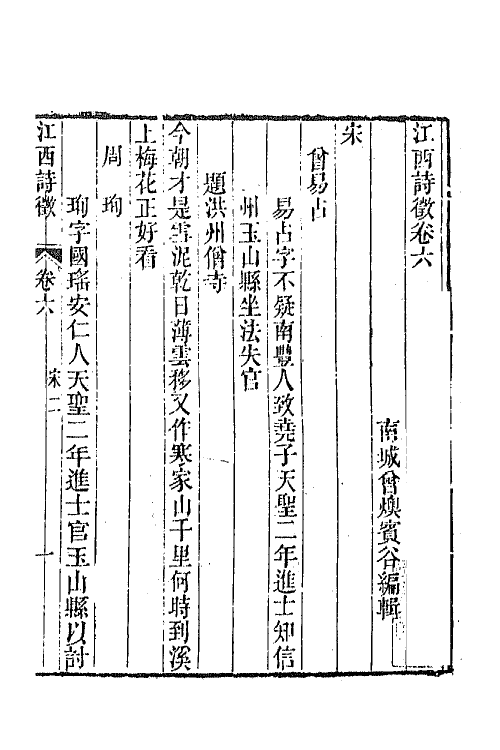 江西詩徵卷六
南城曾燠賓谷編輯
宋
曾易占
易占字不疑南豐人致堯子天聖二年進士知信
州玉山縣坐法失官
題洪州僧寺
今朝才是雪泥乾日薄雲移又作寒家山千里何時到溪
上梅花正好看
周珣
珣字國瑤安仁人天聖二年進士官玉山縣以討
江西詩徵 卷六 宋二 一